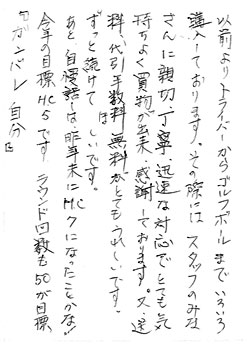 以前よりドライバーからゴルフボールまでいろいろ
購入しております。その際はスタッフのみな
さんに親切、丁寧、迅速な対応でとても気
持ちよく買物が出来、感謝しております。又、送
料、代引手数料無料がとてもうれしいです。
ずっと続けてほしいです。
あと、自慢話は昨年末にHC7になったことかな!
今年の目標HC5です ラウンド回数も50が目標
「ガンバレ自分」